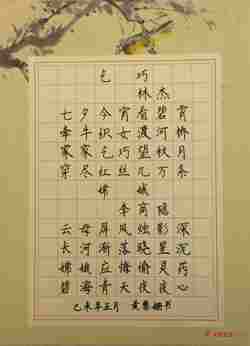 乞巧
林杰
七夕今宵看碧霄
牵牛织女渡河桥
家家乞巧望秋月
穿尽红丝几万条
嫦娥
李商隐
云母屏风烛影深
长河渐落晓星沉
嫦娥应悔偷灵药
碧海青天夜夜心
乙未年五月 黄黎姗书